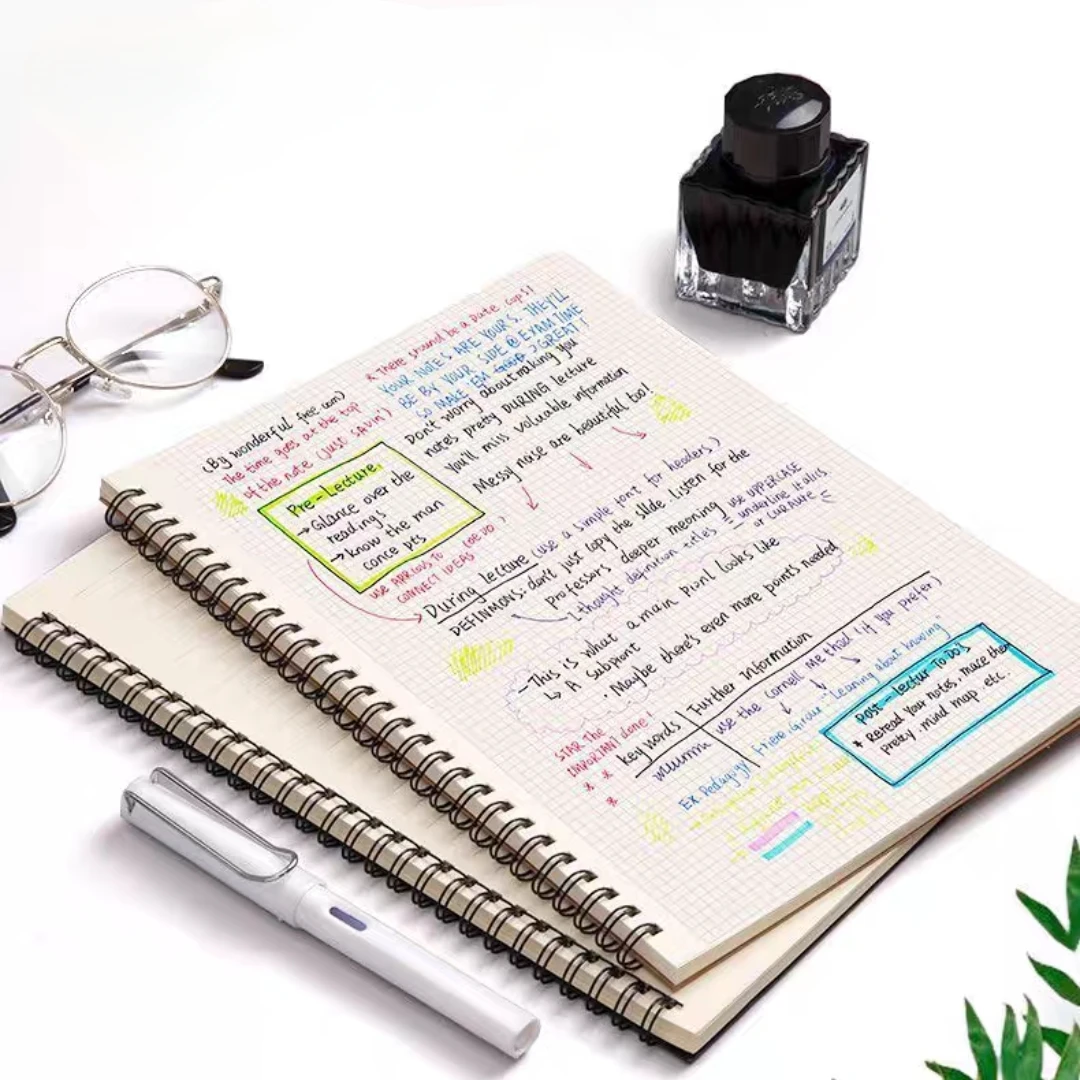 * There should be a Date, cups!
YOUR NOTES ARE YOUR S. THEY'LL
BE BY YOUR SIDE @ EXAM TIME
SO MAKE 'EM GREAT!
(By wonderful free com)
The time goes at the top
of the note (JUST SAYIN')
Don't worry about making you
notes pretty DURING lecture
You'll miss valuable information
Messy nose are beautiful too!
Pre-Lecture
→ Glance over the
readings
→ know the man
conce pts
use ARROWS TO
CONNECT IDEAS
During lecture (use a simple font for headers)
DEFINMONS: don't just copy the slide listen for the
Professors deeper meoning
I thought definition titles
use UPPERCASE
underline Italics
or CURSIVE
- This is what a main piont looks like
↳ A subpront
· Maybe there's even more points needed
STAR The
IMPORTANT done!
* *
*
key words | Further Information
use the cornell me thod (if you prefer)
Ex. Pedagogy
Leaning about knowing
Post - lectur To Do's
* Reread your notes, mace them
pretty, mind map, etc.